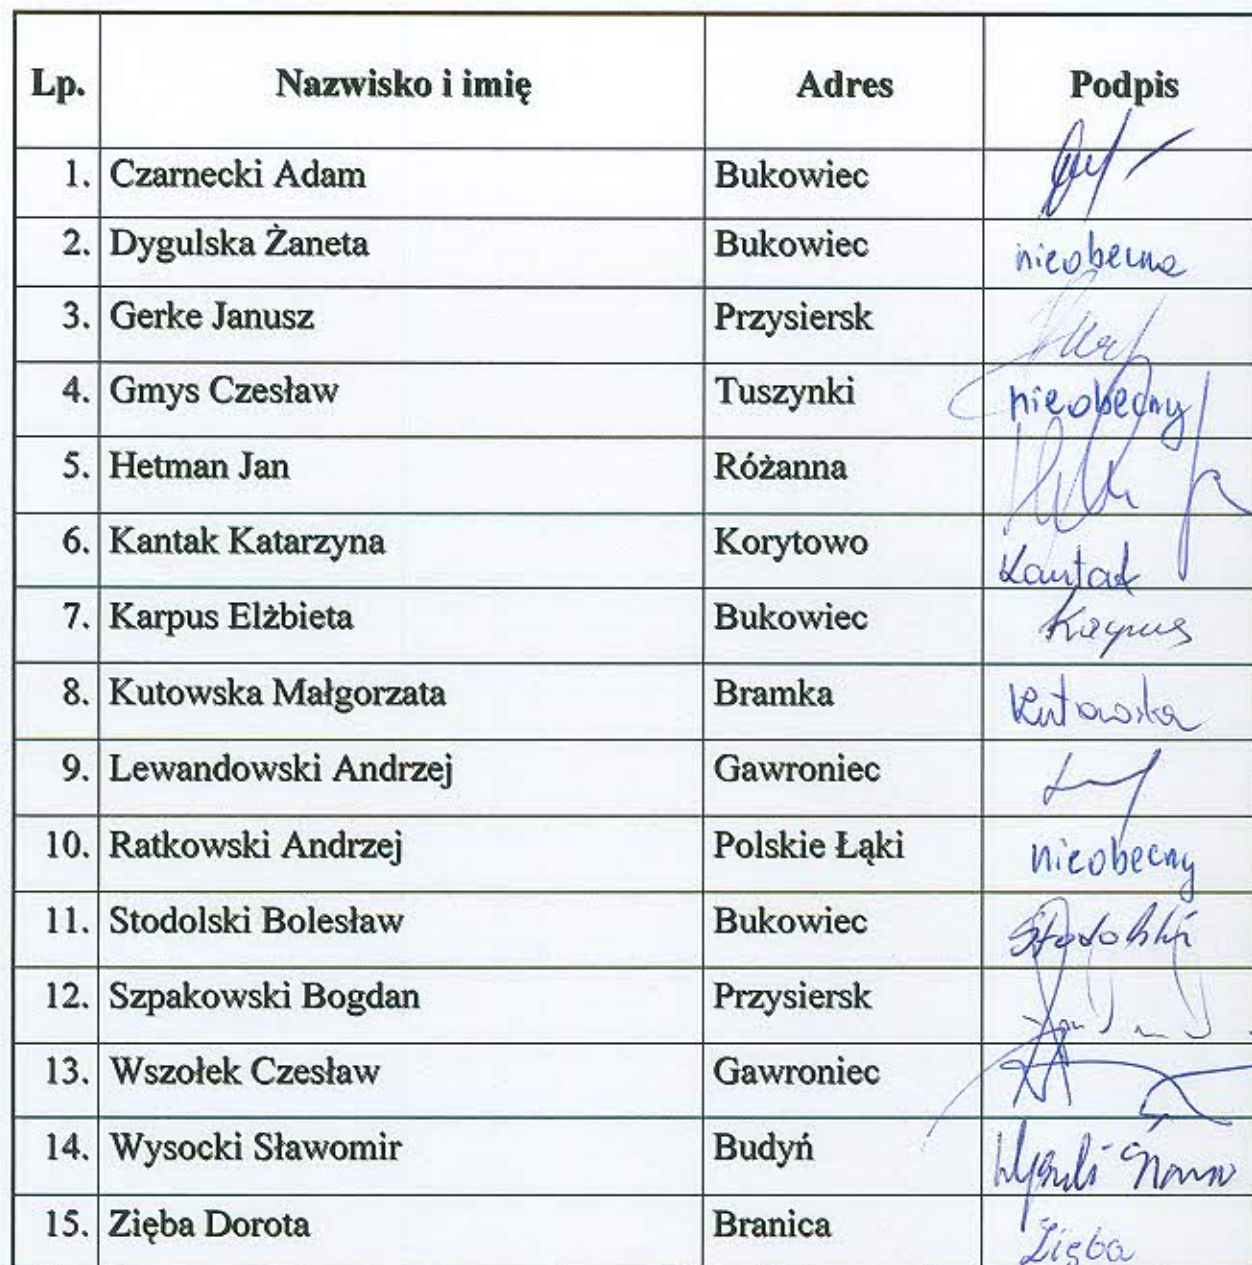 Lp. Nazwisko i imię Adres Podpis
1. Czarnecki Adam Bukowiec
2. Dygulska Żaneta Bukowiec nieobecna
3. Gerke Janusz Przysiersk
4. Gmys Czesław Tuszynki nieobecny
5. Hetman Jan Różanna
6. Kantak Katarzyna Korytowo Kantak
7. Karpus Elżbieta Bukowiec Karpus
8. Kutowska Małgorzata Bramka Kutowska
9. Lewandowski Andrzej Gawroniec
10. Ratkowski Andrzej Polskie Łąki nieobecny
11. Stodolski Bolesław Bukowiec Stodolski
12. Szpakowski Bogdan Przysiersk
13. Wszołek Czesław Gawroniec
14. Wysocki Sławomir Budyń
15. Zięba Dorota Branica Zięba